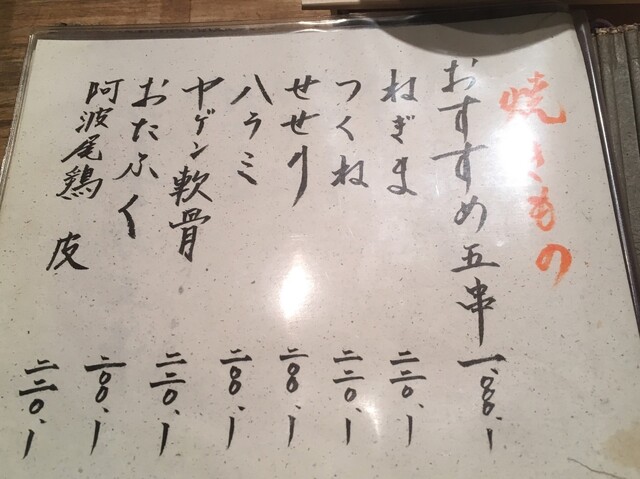 焼きもの
おすすめ五串 一、〇〇〇、ー
ねぎま 二二〇、ー
つくね 二二〇、ー
せせり 二〇〇、ー
ハラミ 二〇〇、ー
ヤゲン軟骨 二二〇、ー
おたふく 二〇〇、ー
阿波尾鶏 皮 二二〇、ー